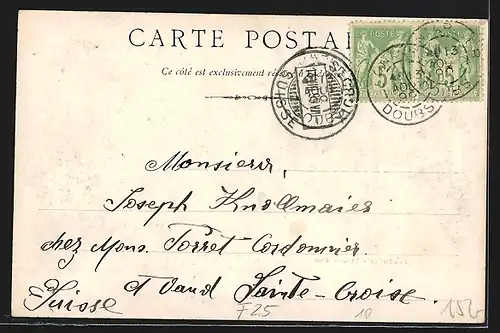 CARTE POSTALE
Ce côté est exclusivement réservé à
POSTE
DOUBS
SUISSE
Monsieur,
Joseph Knollmaier
chez Mons. Torret Cordonnier
Ct Vaud Sainte-Croise.
Suisse
F25
10